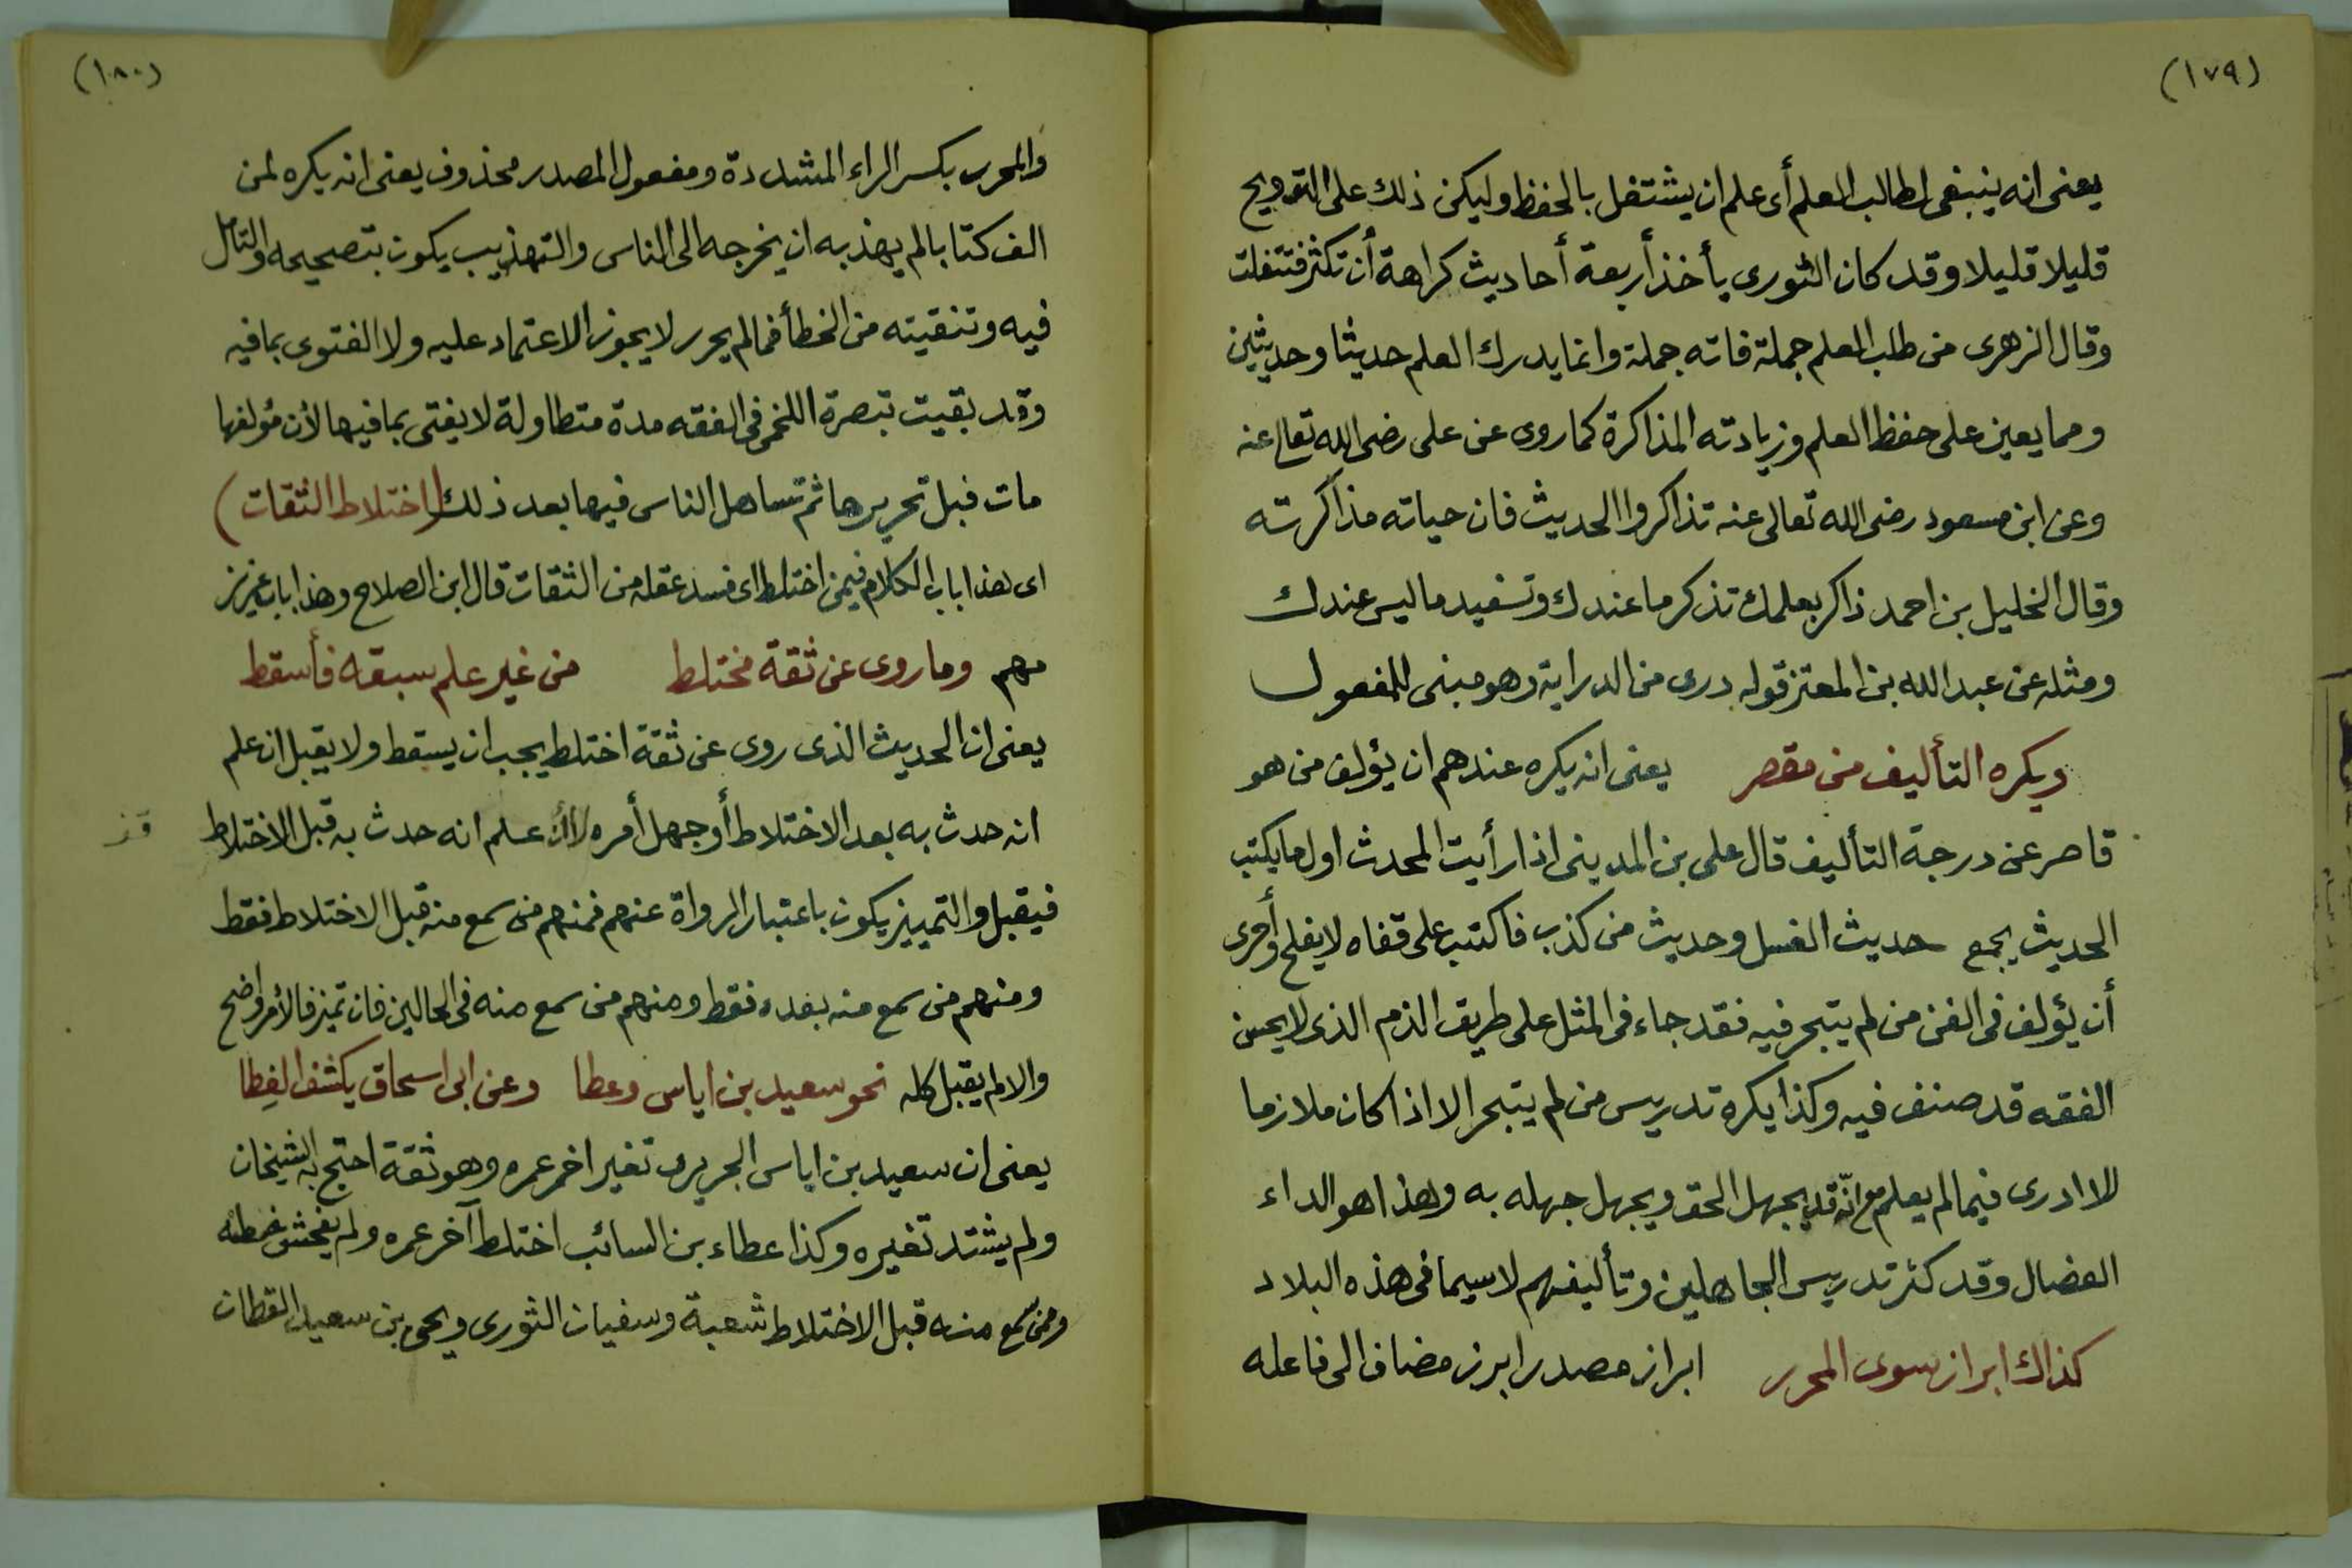 (١٧٩)
يعنى انه ينبغى لطالب العلم أى علم ان يشتغل بالحفظ وليكن ذلك على التدريج
قليلا قليلا وقد كان الثورى يأخذ أربعة أحاديث كراهة أن تكثر فتنفلت
وقال الزهرى من طلب العلم جملة فاته جملة وانما يدرك العلم حديثا وحديثين
ومما يعين على حفظ العلم وزيادته المذاكرة كما روى عن على رضى الله تعالى عنه
وعن ابن مسعود رضى الله تعالى عنه تذاكروا الحديث فان حياته مذاكرته
وقال الخليل بن احمد ذاكر بعلمك تذكر ما عندك وتسفيد ما ليس عندك
ومثله عن عبد الله بن المعتز قوله درى من الدراية وهو مبنى للمفعول
ويكره التأليف من مقصر يعنى انه يكره عندهم ان يؤلف من هو
قاصر عن درجة التأليف قال على بن المدينى اذا رأيت المحدث اول ما يكتب
الحديث يجمع حديث الغسل وحديث من كذب فاكتب على قفاه لا يفلح وأحرى
أن يؤلف فى الفن من لم يتبحر فيه فقد جاء فى المثل على طريق الذم الذى لا يحسن
الفقه قد صنف فيه وكذا يكره تدريس من لم يتبحر الا اذا كان ملازما
للا ادرى فيما لم يعلم مع انّه قد يجهل الحق ويجهل جهله به وهذا هو الداء
العضال وقد كثر تدريس الجاهلين وتأليفهم لا سيما فى هذه البلاد
كذاك ابراز سوى المحرر ابراز مصدر ابرز مضاف الى فاعله
(١٨٠)
والمحرر بكسر الراء المشددة ومفعول المصدر محذوف يعنى انه يكره لمن
الف كتابا لم يهذبه ان يخرجه الى الناس والتهذيب يكون بتصحيحه والتأمل
فيه وتنقيته من الخطأ فما لم يحرر لا يجوز الاعتماد عليه ولا الفتوى بما فيه
وقد بقيت تبصرة اللخمى فى الفقه مدة متطاولة لا يفتى بما فيها لأن مؤلفها
مات قبل تحريرها ثم تساهل الناس فيها بعد ذلك (اختلاط الثقات)
اى هذا باب الكلام فيمن اختلط اى فسد عقله من الثقات قال ابن الصلاح وهذا باب عزيز
مهم وما روى عن ثقة مختلط من غير علم سبقه فأسقط
يعنى ان الحديث الذى روى عن ثقة اختلط يجب ان يسقط ولا يقبل ان علم
انه حدث به بعد الاختلاط أو جهل أمره علم انه حدث به قبل الاختلاط
فيقبل والتمييز يكون باعتبار الرواة عنهم فمنهم من سمع منه قبل الاختلاط فقط
ومنهم من سمع منه بعده فقط ومنهم من سمع منه فى الحالين فان تميز فالأمر واضح
والا لم يقبل كله نحو سعيد بن اياس وعطا وعن ابى اسحاق يكشف الغِطا
يعنى ان سعيد بن اياس الجريرى تغير اخر عمره وهو ثقة احتج به الشيخان
ولم يشتد تغيره وكذا عطاء بن السائب اختلط آخر عمره ولم يفحش خطئه
وممن سمع منه قبل الاختلاط شعبة وسفيان الثورى ويحى بن سعيد القطان